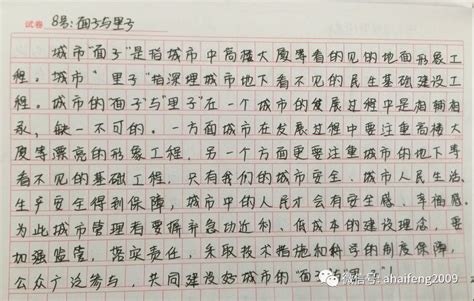 试卷 8号：面子与里子
城市"面子"是指城市中高楼大厦等看的见的地面形象工
程。城市"里子"指深埋城市地下看不见的民生基础建设工
程。城市的"面子"与"里子"在一个城市的发展过程中是相辅相
承，缺一不可的。一方面城市在发展过程中要注重高楼大
厦等漂亮的形象工程，另一个方面更要注重城市的地下等
看不见的基础工程，只有我们的城市安全、人民生活、
生产安全得到保障，城市中的人民才会有安全感、幸福感。
为此城市管理者要摒弃急功近利、低成本的建设理念，要
加强监管，落实责任，采取技术措施和科学的制度保障，
公众广泛参与，共同建设好城市的"面子与里子"
微信号: ahaifeng2009